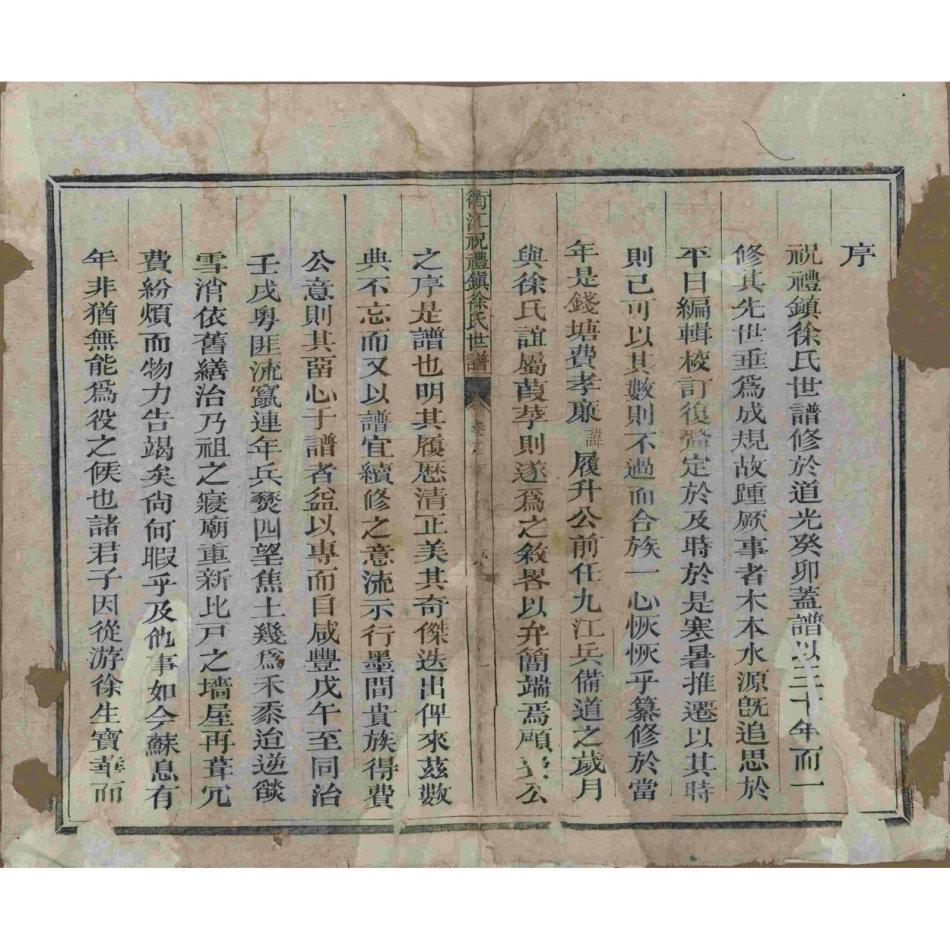 序
祝禮鎮徐氏世譜修於道光癸卯蓋譜以三十年而一
修其先世垂爲成規故踵厥事者木本水源旣追思於
平日編輯校訂復定於及時於是寒暑推遷以其時
則己可以其數則不過而合族一心恢恢乎纂修於當
年是錢塘費孝廉諱履升公前任九江兵備道之歲月
與徐氏誼屬葭莩則遂爲之敘畧以弁簡端焉顧公
衢江祝禮鎮徐氏世譜
卷之
之序是譜也明其履歷清正美其奇傑迭出俾來茲數
典不忘而又以譜宜續修之意流示行墨間貴族得費
公意則其啇心于譜者益以專而自咸豐戊午至同治
壬戌粵匪流竄連年兵燹四望焦土幾爲禾黍迨逆燄
雪消依舊繕治乃祖之寢廟重新比戸之墻屋再葺冗
費紛煩而物力告竭矣尙何暇乎及他事如今蘇息有
年非猶無能爲役之候也諸君子因從游徐生寶華而